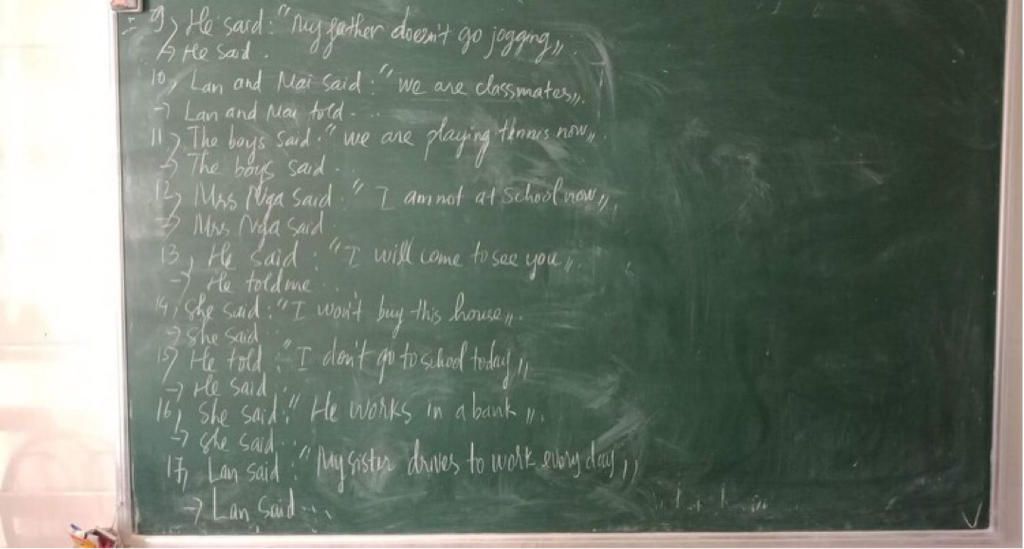 9, He said: "My father doesn't go jogging,,.
→ He said.
10, Lan and Mai said: "we are classmates,,.
→ Lan and Mai told...
11, The boys said: "we are playing tennis now,,.
→ The boys said...
12, Mrs Nga said: "I am not at school now,,.
→ Mrs Nga said.
13, He said: "I will come to see you,,.
→ He told me...
14, She said: "I won't buy this house,,.
→ She said
15, He told: "I don't go to school today,,
→ He said.
16, She said: "He works in a bank,,.
→ She said...
17, Lan said: "My sister drives to work every day,,
→ Lan said...